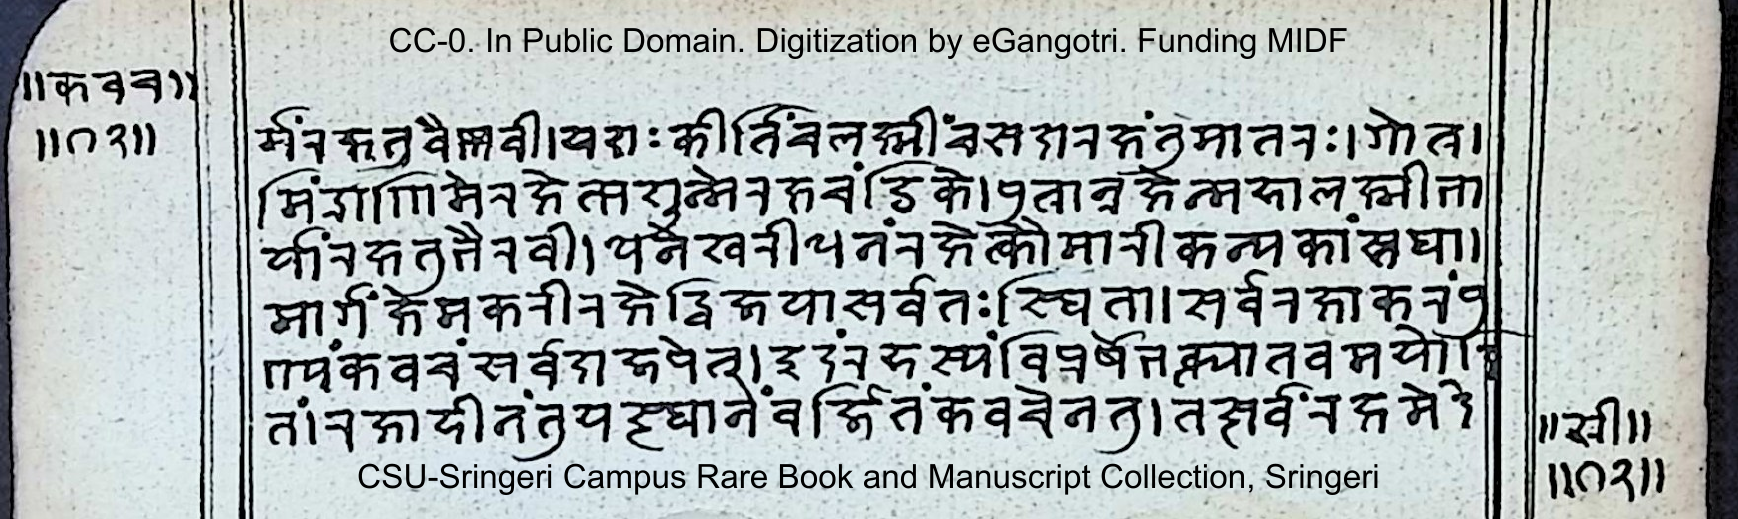 CC-0. In Public Domain. Digitization by eGangotri. Funding MIDF
॥कवच॥
॥१२॥
र्मंरक्षतुवैष्णवी।यशःकीर्तिंचलक्ष्मींचसदारक्षंतुमातरः।गोत्र।
मिंद्राणिमेरक्षेत्पशून्मेरक्षचंडिके।पुत्रान्रक्षेन्महालक्ष्मीर्भा
र्यांरक्षतुभैरवी।धनेश्वरीधनंरक्षेत्कौमारीकन्यकांस्तथा।
मार्गंक्षेमकरीरक्षेद्विजयासर्वतःस्थिता।सर्वरक्षाकरंपु
ण्यंकवचंसर्वदाजपेत्।इदंरहस्यंविप्रर्षेभक्त्यातवमयोदि
तं।रक्षाहीनंतुयत्स्थानंवर्जितंकवचेनतु।तत्सर्वंरक्षमेदे
॥स्री॥
॥१२॥
CSU-Sringeri Campus Rare Book and Manuscript Collection, Sringeri